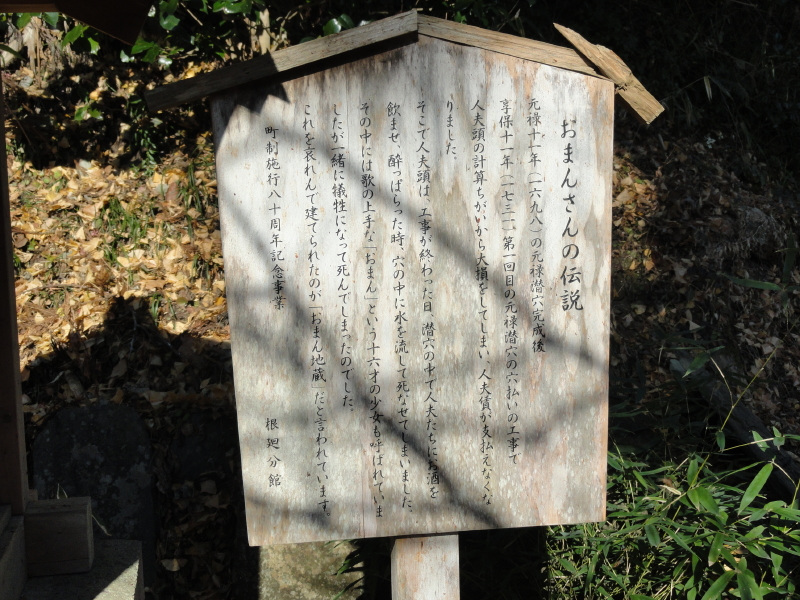 おまんさんの伝説
元禄十一年(一六九八)の元禄潜穴完成後
享保十一年(一七三一)、第一回目の元禄潜穴の穴払いの工事で
人夫頭の計算ちがいから大損をしてしまい、人夫賃が支払えなくな
りました。
そこで人夫頭は、工事が終わった日、潜穴の中で人夫たちにお酒を
飲ませ、酔っぱらった時、穴の中に水を流して死なせてしまいました。
その中には歌の上手な「おまん」という十六才の少女も呼ばれていま
したが一緒に犠牲になって死んでしまったのでした。
これを哀れんで建てられたのが「おまん地蔵」だと言われています。
町制施行八十周年記念事業
根廻分館